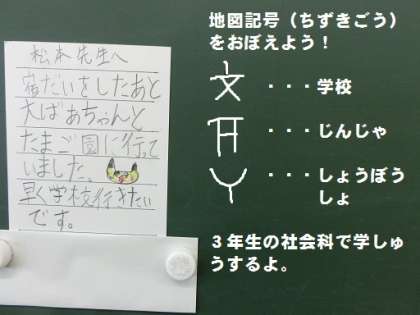 松本先生へ
宿だいをしたあと
大ばあちゃんと
たまご園に行って
いました。
早く学校行きたい
です。
地図記号（ちずきごう）
をおぼえよう！
文 ・・・学校
・・・じんじゃ
・・・しょうぼう
しょ
３年生の社会科で学しゅ
うするよ。